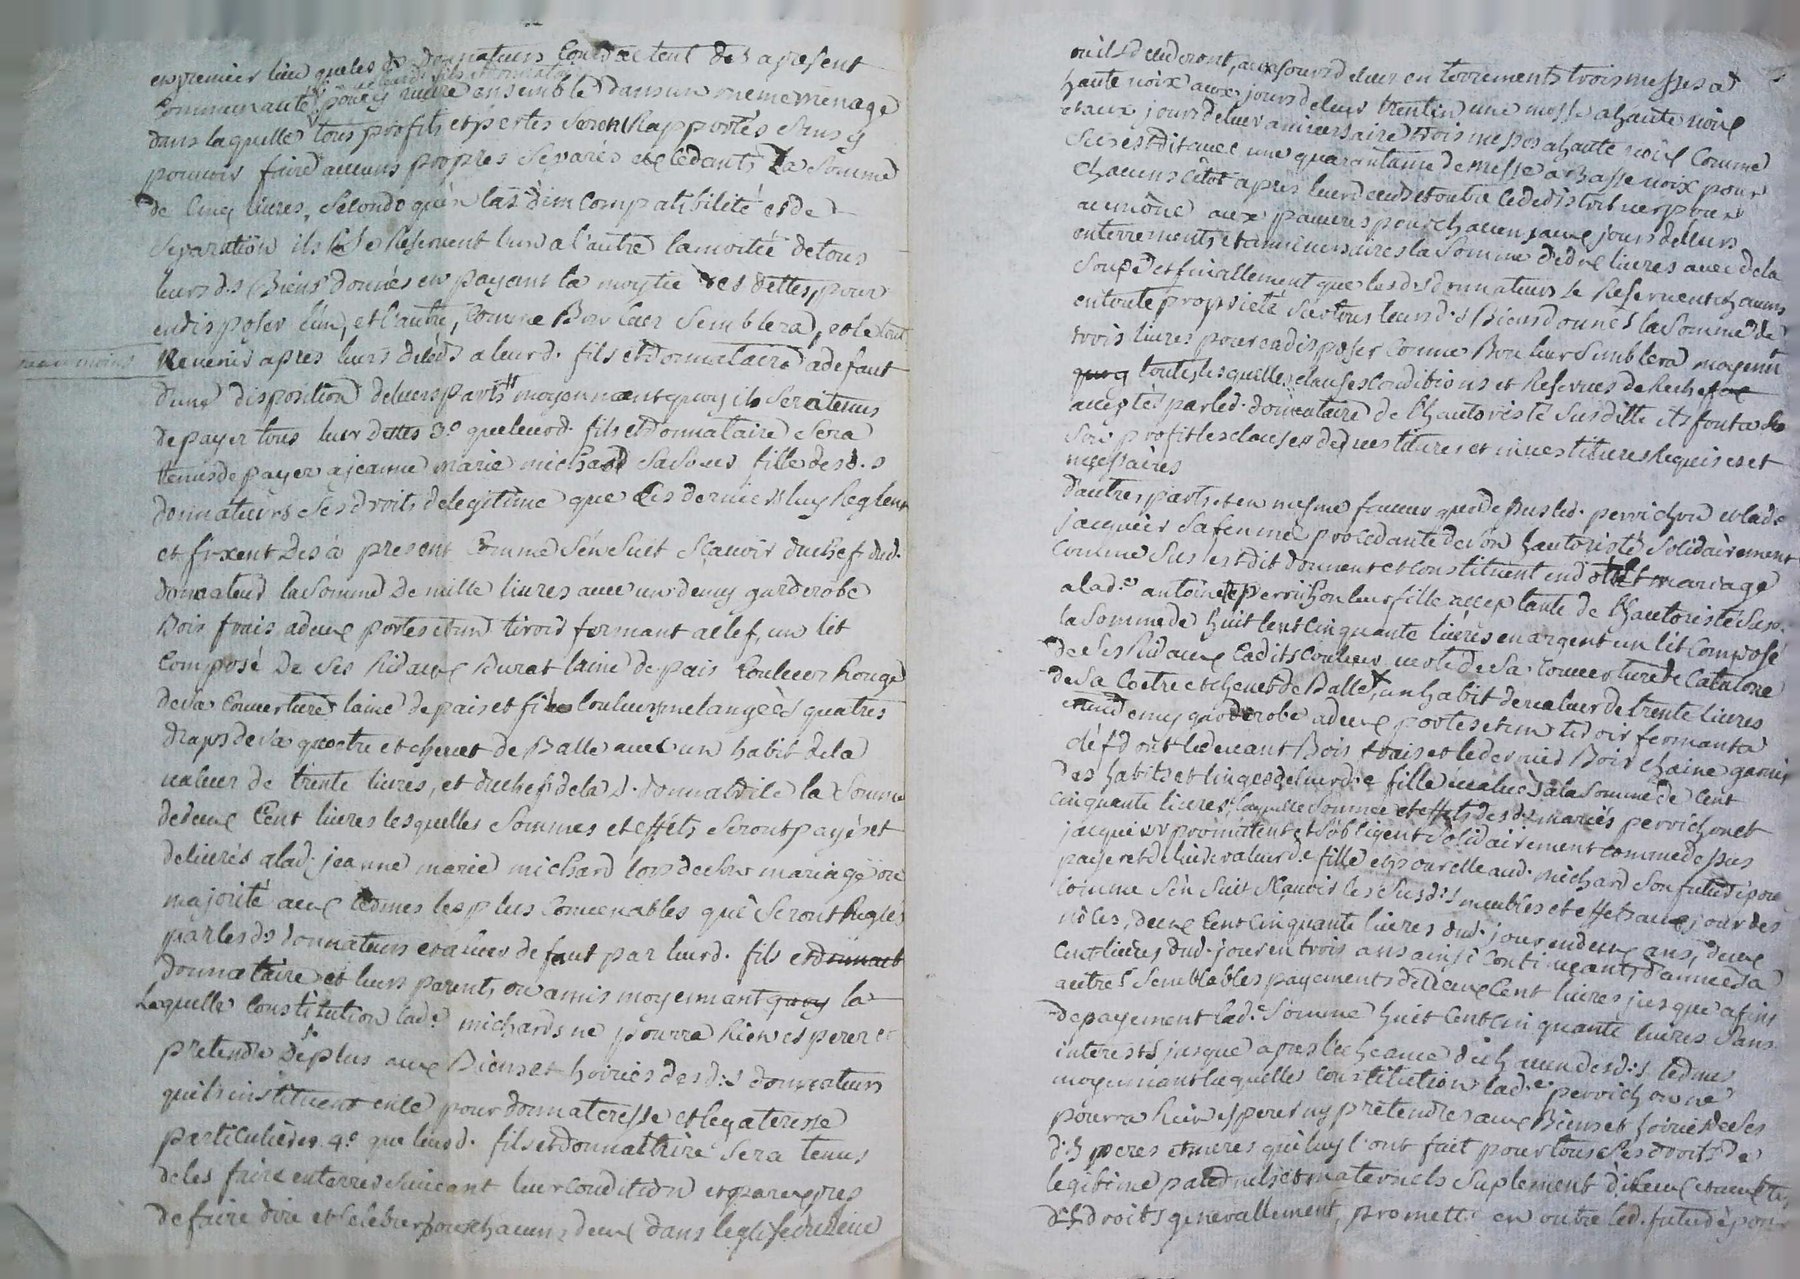 en premier lieu que les d. donateurs contractent des a present
communauté pour y vivre ensemble dans un meme ménage
dans laquelle tous profits et pertes seront Rapportés sans y
pouvoir faire aucuns propres separés excedants la somme
de cinq livres, secondo qu'en cas d'incompatibilité et de
separation ils se Reservent l'un a l'autre la moitié de tous
leurs d.s Biens donnés en payant la moytié des dettes, pour
en disposer l'un, et l'autre, comme Bon leur semblera, et le tout
neanmoins Revenir apres leurs décéds a leur d. fils et donnataire a defaut
d'une disposition de leurs parts moyennant quoy il sera tenus
de payer tous leur dettes 3.º que leurd. fils et donnataire sera
tenus de payer a jeanne marie michard sa soeur fille des d.s
donnateurs ses droits de legitime que ces derniers luy Reglent
et fixent des a present comme s'en suit sçavoir du chef dud.
donnateur la somme de mille livres avec un demy garderobe
Bois frais a deux portes et un tiroir fermant a clef, un lit
composé de ses Rideaux Burat laine de pais couleur Rouge
de sa couverture laine de pais et fil couleurs melangées quatres
draps de sa coetre et chevet de Balle avec un habit de la
valeur de trente livres, et du chef de la d. donnatrice la somme
de deux cent livres lesquelles sommes et effets seront payés et
delivrés a lad. jeanne marie michard lors de son mariage ou
majorité aux termes les plus convenables qui seront Reglés
par les d.s donnateurs et a leur defaut par leurd. fils et
donnataire et leurs parents ou amis moyennant quoy la
Laquelle constitution lad.e michard ne pourra Rien esperer et
pretendre de plus aux Biens et hoiries des d.s donnateurs
qu'ils instituent en ce pour donnateresse et legateresse
particulieres 4.º que leurd. fils et donnattaire sera tenus
de les faire enterrer suivant leur condition et par expres
de faire dire et celebrer pour chacuns deux dans leglise du lieu
ou ils decederont, aux jours de leur enterrements trois messes a
haute voix aux jours de leur trentin une messe a haute voix
et aux jours de leur aniversaire trois messes a haute voix comme
sus est dit avec une quarantaine de messe a basse voix pour
chacuns citot apres leur deceds et outre ce de distribuer pour
aumône aux pauvres pour chacun aux jours de leurs
enterrements et anniversaires la somme de dix livres avec de la
soupe et finallement que les d.s donnateurs se Reservent chacuns
en toute proprieté sur tous leurs d.s Biens donnés la somme de
trois livres pour en disposer comme Bon leur semblera moyennt
quoy toutes lesquelles clauses conditions et Reserves de Rechef
acceptés par led. donnataire de l'hautoristé susditte ils font a
son profit les clauses de devestitures et investitures Requises et
necessaires
d'autres parts et en mesme faveur que dessus led. perrichon et lade
jacquier sa femme procedante de son hautoristé solidairement
comme sus est dit donnent et constituent en dotte mariage
a lad.e antoinette perrichon leur fille acceptante de l'hautoristé
la somme de huit cent cinquante livres en argent un lit composé
de ses Rideaux Cadits couleur de sa couverture Catalone
de sa Coetre et chevet de Balle, un habit de valeur de trente livres
et un demy garderobe a deux portes et un tiroir fermant a
clef dont le devant Bois frais et le dernier Bois chaine garni
des habits et linges de leur d.e fille evalués a la somme de cent
cinquante livres laquelle somme et effets les d.s mariés perrichon et
jacquier promettent et s'obligent solidairement comme dessus
payer et delivrer a leurd.e fille et pour elle aud. michard son futur époux
comme s'en suit sçavoir les sus d.s meubles et effets aux jour des
nôces, deux cent cinquante livres dud. jour en deux ans, deux
cent livres dud. jour en trois ans ainsi continuant d'année a
autre semblables payements de deux cent livres jusque a fins
de payement lad.e somme huit cent cinquante livres sans
interests jusque apres l'echeance de chacun des d.s termes
moyennant laquelles constitution lad.e perrichon ne
pourra Rien esperer ny pretendre aux Biens et hoiries de ses
d.s peres et meres qui luy l'ont fait pour tous ses droits de
legitime paternels et maternels suplement d'iceux et autres
droits generallement, promette en outre led. futur épou